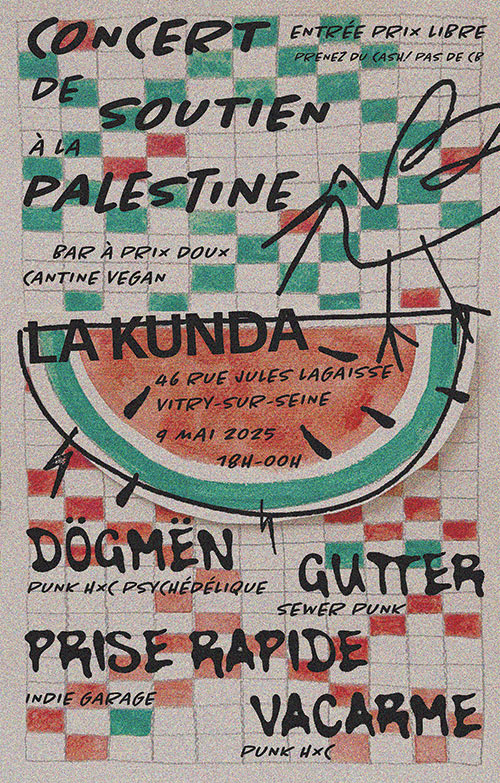 CONCERT
DE SOUTIEN
À LA
PALESTINE
ENTRÉE PRIX LIBRE
PRENEZ DU CASH/ PAS DE CB
BAR À PRIX DOUX
CANTINE VEGAN
LA KUNDA
46 RUE JULES LAGAISSE
VITRY-SUR-SEINE
9 MAI 2025
18H-00H
DÖGMËN
PUNK HXC PSYCHÉDÉLIQUE
GUTTER
SEWER PUNK
PRISE RAPIDE
INDIE GARAGE
VACARME
PUNK HXC